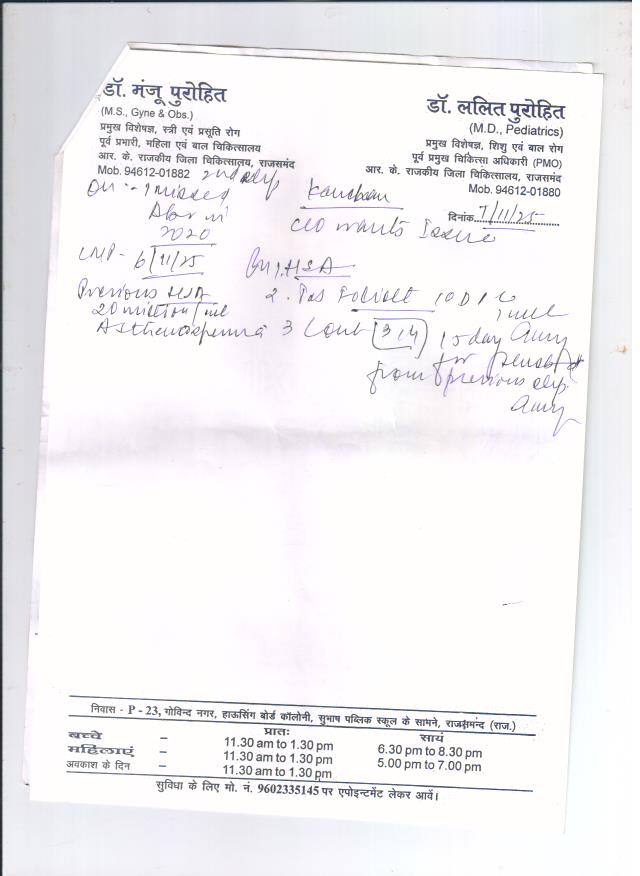 डॉ. मंजू पुरोहित
(M.S., Gyne & Obs.)
प्रमुख विशेषज्ञ, स्त्री एवं प्रसूति रोग
पूर्व प्रभारी, महिला एवं बाल चिकित्सालय
आर. के. राजकीय जिला चिकित्सालय, राजसमंद
Mob. 94612-01882
डॉ. ललित पुरोहित
(M.D., Pediatrics)
प्रमुख विशेषज्ञ, शिशु एवं बाल रोग
पूर्व प्रमुख चिकित्सा अधिकारी (PMO)
आर. के. राजकीय जिला चिकित्सालय, राजसमंद
Mob. 94612-01880
दिनांक 7/11/25
1 missed
2020
C/O wants Issue
LMP- 6/11/25
HSA
Previous HSA
20 million/ml
2.
3
(3,4)
15 day
for
from previous
निवास - P - 23, गोविन्द नगर, हाऊसिंग बोर्ड कॉलोनी, सुभाष पब्लिक स्कूल के सामने, राजसमन्द (राज.)
प्रातः सायं
बच्चे – 11.30 am to 1.30 pm 6.30 pm to 8.30 pm
महिलाएं – 11.30 am to 1.30 pm 5.00 pm to 7.00 pm
अवकाश के दिन – 11.30 am to 1.30 pm
सुविधा के लिए मो. नं. 9602335145 पर एपोइन्टमेंट लेकर आवें।